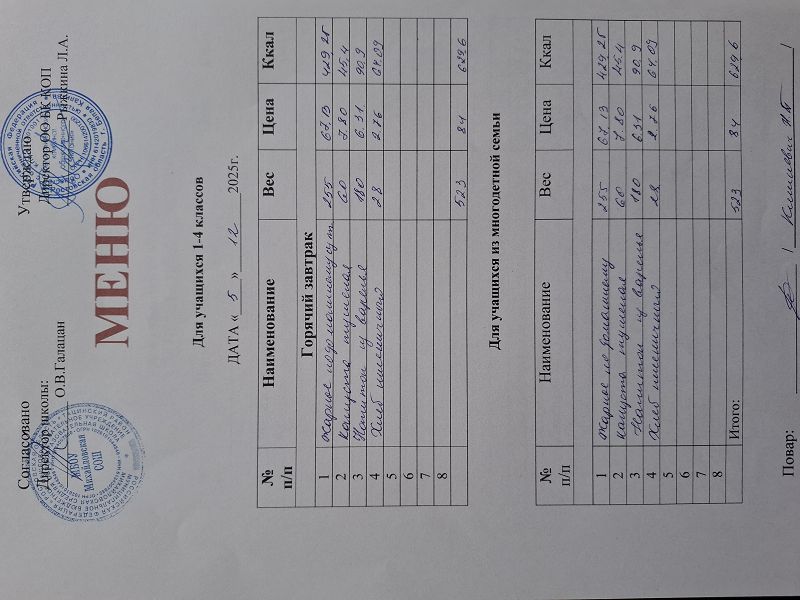 Согласовано Утверждаю
Директор школы: Директор ОО БК-КОП
О.В.Галацан Рыжкина Л.А.
МБОУ
Михайловская
СОШ
МЕНЮ
Для учащихся 1-4 классов
ДАТА « 5 » 12 2025г.
№ п/п Наименование Вес Цена Ккал
Горячий завтрак
1 Жаркое по домашнему с кут. 255 67,13 429,25
2 Капуста тушеная 60 7.80 45,4
3 Напиток из варенья 180 6.31 90,9
4 Хлеб пшеничный 28 2.76 64.09
5
6
7
8
523 84 629,6
Для учащихся из многодетной семьи
№ п/п Наименование Вес Цена Ккал
1 Жаркое по домашнему 255 67.13 429,25
2 капуста тушеная 60 7.80 45,4
3 Напиток из варенья 180 6.31 90,9
4 Хлеб пшеничный 28 2.76 64.09
5
6
7
8
Итого: 523 84 629,6
Повар: / /